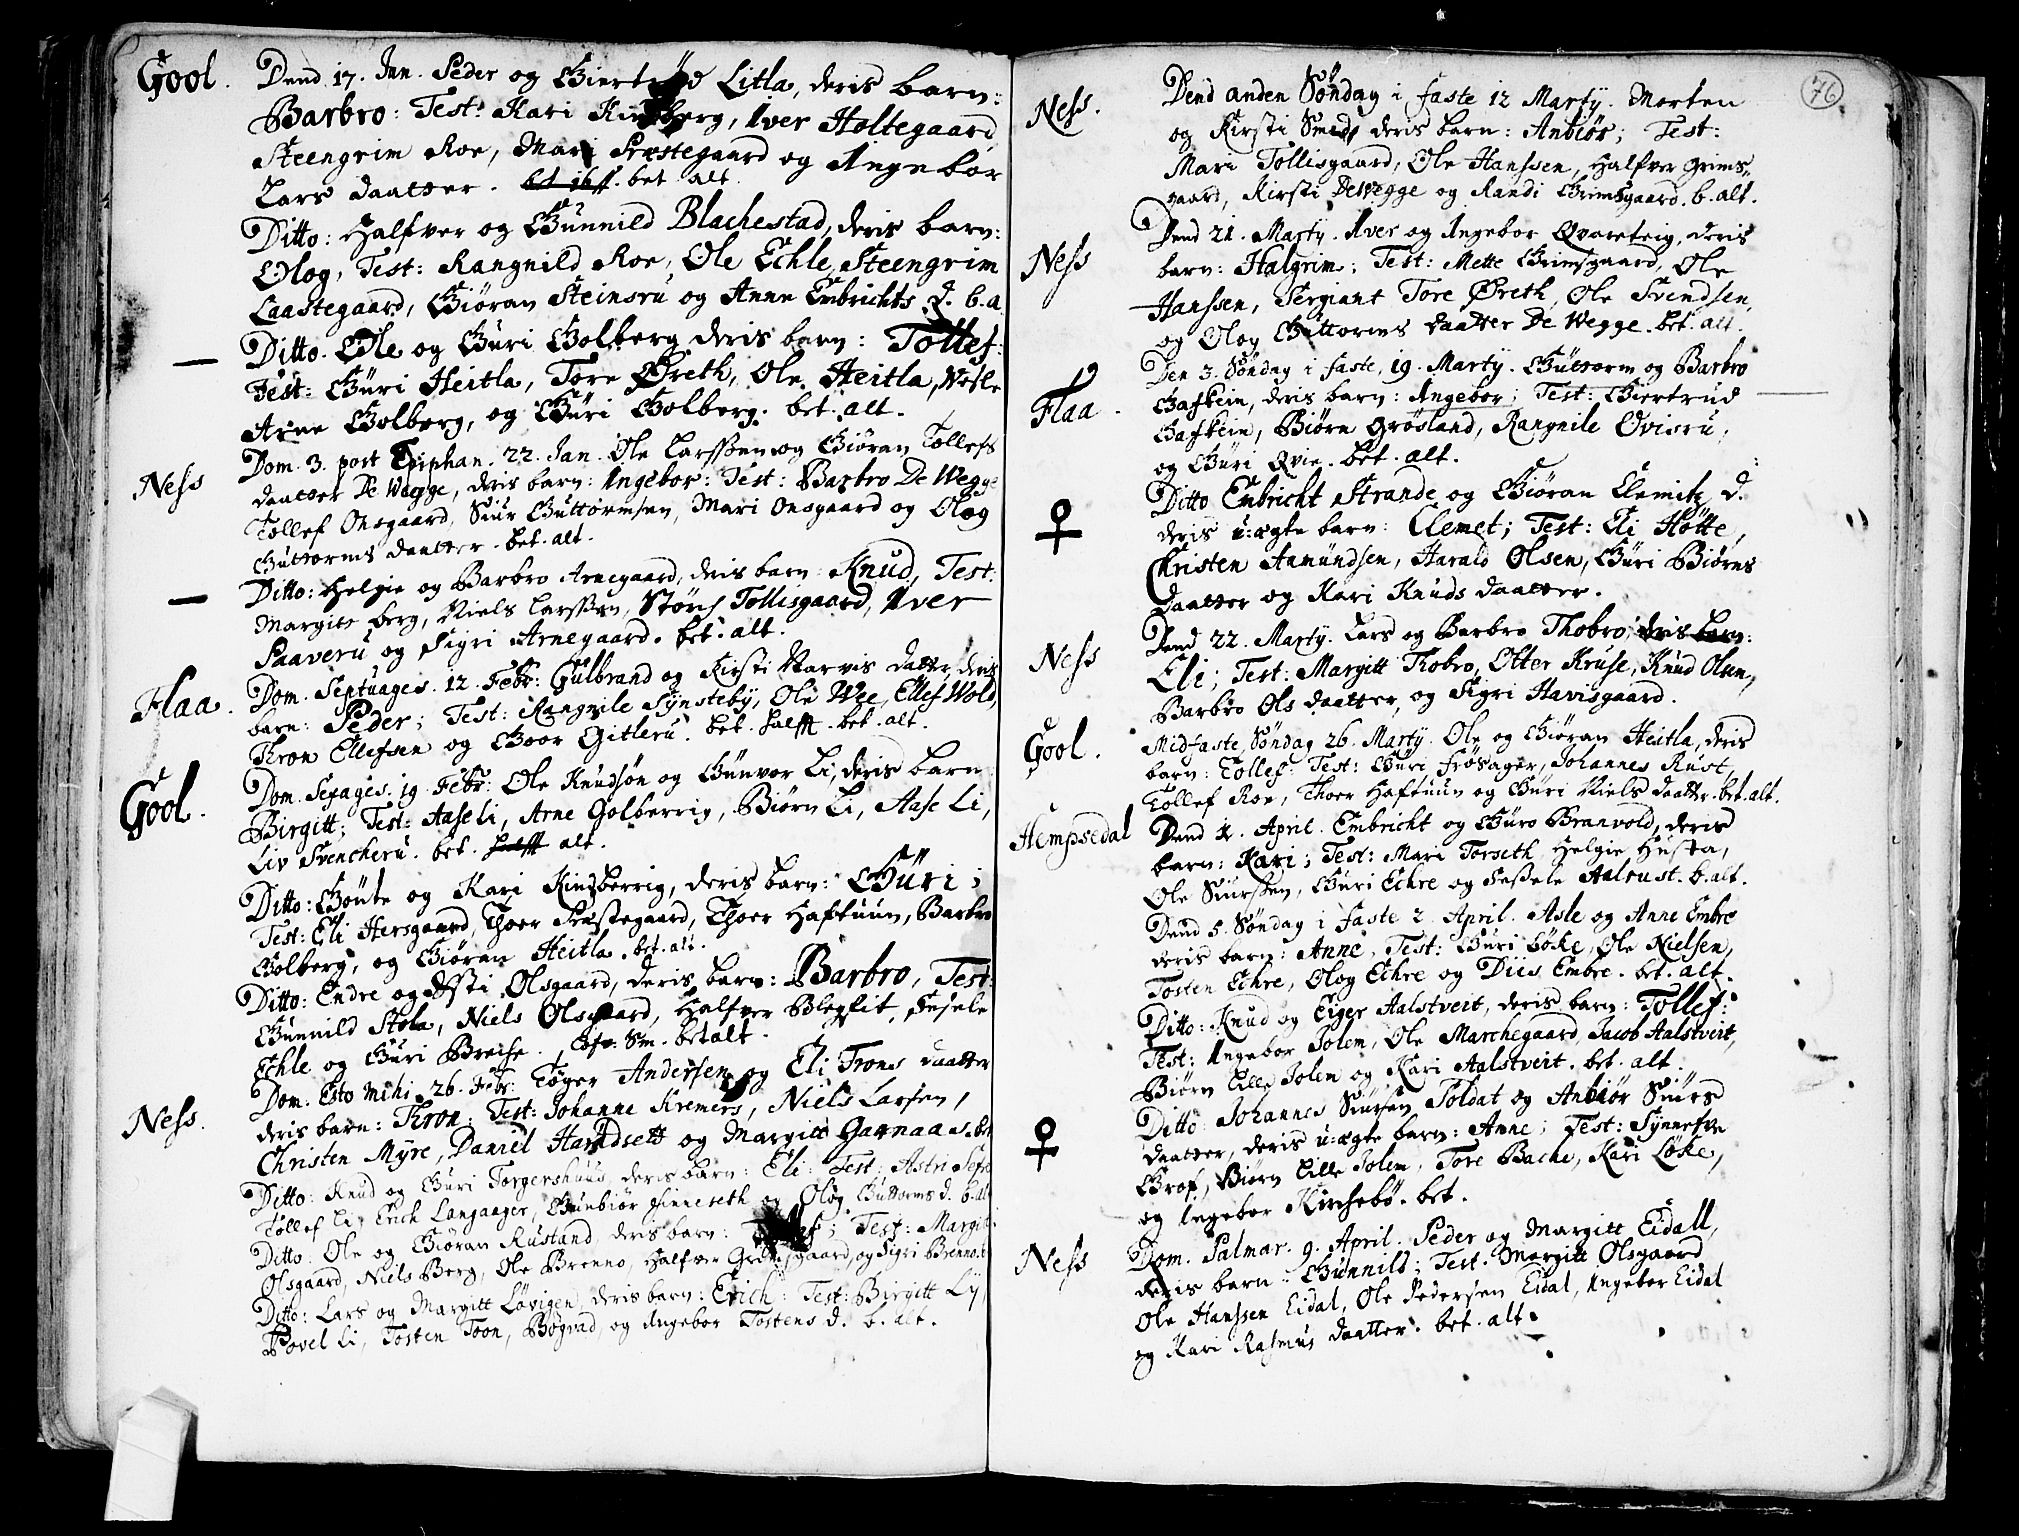 Gool. Dend 17. Jan. Peder og Giertrud Litla, deris barn:
Barbro: Test: Kari Kindberg, Iver Holtegaard
Steengrim Roe, Mari Præstegaard og Angebor
Lars daatter. bet. alt.
Ditto: Halfver og Gunnild Blachestad, deris barn:
Olog, Test: Rangnild Roe, Ole Echle, Steengrim
Laastegaard, Giøran Steinsru og Anne Embrichts d. b. a
Ditto. Ole og Guri Golberg deris barn: Tollef:
Test: Guri Heitla, Tore Øreth, Ole Heitla, Nesle
Arne Golberg, og Guri Golberg. bet. alt.
Ness Dom. 3. post Epiphan. 22. Jan. Ole Larssen og Giøran Tollefs
daatter De Wegge, deris barn: Ingebor: Test: Barbro De Wegge
Tollef Onsgaard, Siur Guttormsen, Mari Onsgaard og Olog
Guttorms daatter. bet. alt.
Ditto: Helgie og Barbro Arnegaard, deris barn: Knud, Test:
Margitt berg, Niels Larssen, Størch Tollisgaard, Iver
Paaveru og Sigri Arnegaard. bet. alt.
Flaa. Dom. Septuages. 12. Febr: Gulbrand og Kirsti Narvis datter, deris
barn: Peder; Test: Rangnile Synsteby, Ole Wee, Ellef Wold,
Tron Ellefsen og Goor Gitleru. bet. halft. bet. alt.
Gool. Dom. Sexages. 19. Febr: Ole Knudsøn og Gunvor Li, deris barn
Birgitt; Test: Aase Li, Arne Golberrig, Biørn Li, Aase Li,
Liv Svencheru. bet. halft alt.
Ditto: Gønte og Kari Kindberrig, deris barn: Guri;
Test: Eli Hersgaard, Thoer Præstegaard, Thoer Haftuun, Barbro
Golberg, og Giøran Heitla. bet. alt.
Ditto: Endre og Osti Olsgaard, deris barn: Barbro, Test:
Gunnild Stola, Niels Olsgaard, Halfver Bleglit, Sesele
Echle og Guri Breise. Sm. betalt.
Ness. Dom. Esto mihi, 26. Febr: Tøger Andersen og Eli Trons daatter
deris barn: Tron; Test: Johanne Kremers, Niels Larsen,
Christen Myre, Daniel Haraldsett og Margitt Garnaas. bet
Ditto: Knud og Guri Torgershuus, deris barn: Eli: Test: Astri
Tollef Li, Erich Langaager, Gunbiør Finneseth og Olog Guttorms d. b. alt
Ditto: Ole og Giøran Rustand, deris barn: Test: Margitt
Olsgaard, Niels Berg, Ole Brenno, Halfver Grimsgaard, og Sigri Brenno.
Ditto: Lars og Margitt Løvigen, deris barn: Erich: Test: Birgitt Ly,
Povel Li, Tosten Toon, Bogvad, og Angebor Tostens d. b. alt.
76
Ness. Dend anden Søndag i faste 12 Marty. Morten
og Kirsti Smed, deris barn: Anbiør; Test:
Mari Tollisgaard, Ole Hanssen, Halfver Grims-
gaard, Kirsti DeWegge og Randi Grimsgaard. b. alt.
Ness Dend 21. Marty. Iver og Angebor Qvareteig, deris
barn: Halgrim; Test: Mette Grimsgaard, Ole
Hanssen, Sergiant Tore Øreth, Ole Svendsen,
og Olog Guttorms daatter De Wegge. bet. alt.
Flaa. Den 3. Søndag i faste, 19. Marty. Guttorm og Barbro
Gafkein, deris barn: Angebor; Test: Giertrud
Gafkein, Biørn Grøsland, Rangnile Ovisru,
og Guri Qvie. bet. alt.
♀ Ditto Embricht Strande og Giøran Clemitz d.
deris u:ægte barn: Clemet; Test: Eli Høtte,
Christen Anmundsen, Harald Olsen, Guri Biørns
daatter og Kari Knuds daatter.
Ness Dend 22. Marty. Lars og Barbro Thobro, deris barn:
Eli; Test: Margitt Thobro, Otter Kruse, Knud Olsen,
Barbro Ols daatter, og Sigri Havisgaard.
Gool. Midfaste Søndag 26. Marty. Ole og Giøran Heitla, deris
barn: Tollef: Test: Guri Frøsager, Johannes Rust,
Tollef Roe, Thoer Haftuun og Guri Niels daatter. bet. alt.
Hempsedal Dend 2. April. Embricht og Guro Branvold, deris
barn: Kari; Test: Mari Torseth, Helgie Husta,
Ole Siurssen, Guri Echre og Sessele Aalrust. b. alt.
Dend 5. Søndag i faste 2. April. Asle og Anne Embre
deris barn: Anne, Test: Guri Løke, Ole Nielsen,
Tosten Echre, Olog Echre og Diis Embre. bet. alt.
Ditto: Knud og Eiger Aalstveit, deris barn: Tollef:
Test: Angebor Jolem, Ole Marchegaard, Jacob Aalstveit,
Biørn Lille Jolem og Kari Aalstveit. bet. alt.
♀ Ditto: Johannes Siursen Soldat og Anbiør Siurs
daatter, deris u:ægte barn: Anne; Test: Synnefve
Grøf, Biørn Lille Jolem, Tore Bache, Kari Løke,
og Ingebor Kirchebø. bet.
Ness Dom. Palmar. 9. April. Peder og Margitt Eidall,
deris barn: Gunnild; Test. Margitt Olsgaard
Ole Hanssen Eidal, Ole Pedersen Eidal, Angebor Eidal
og Kari Rasmus daatter. bet. alt.